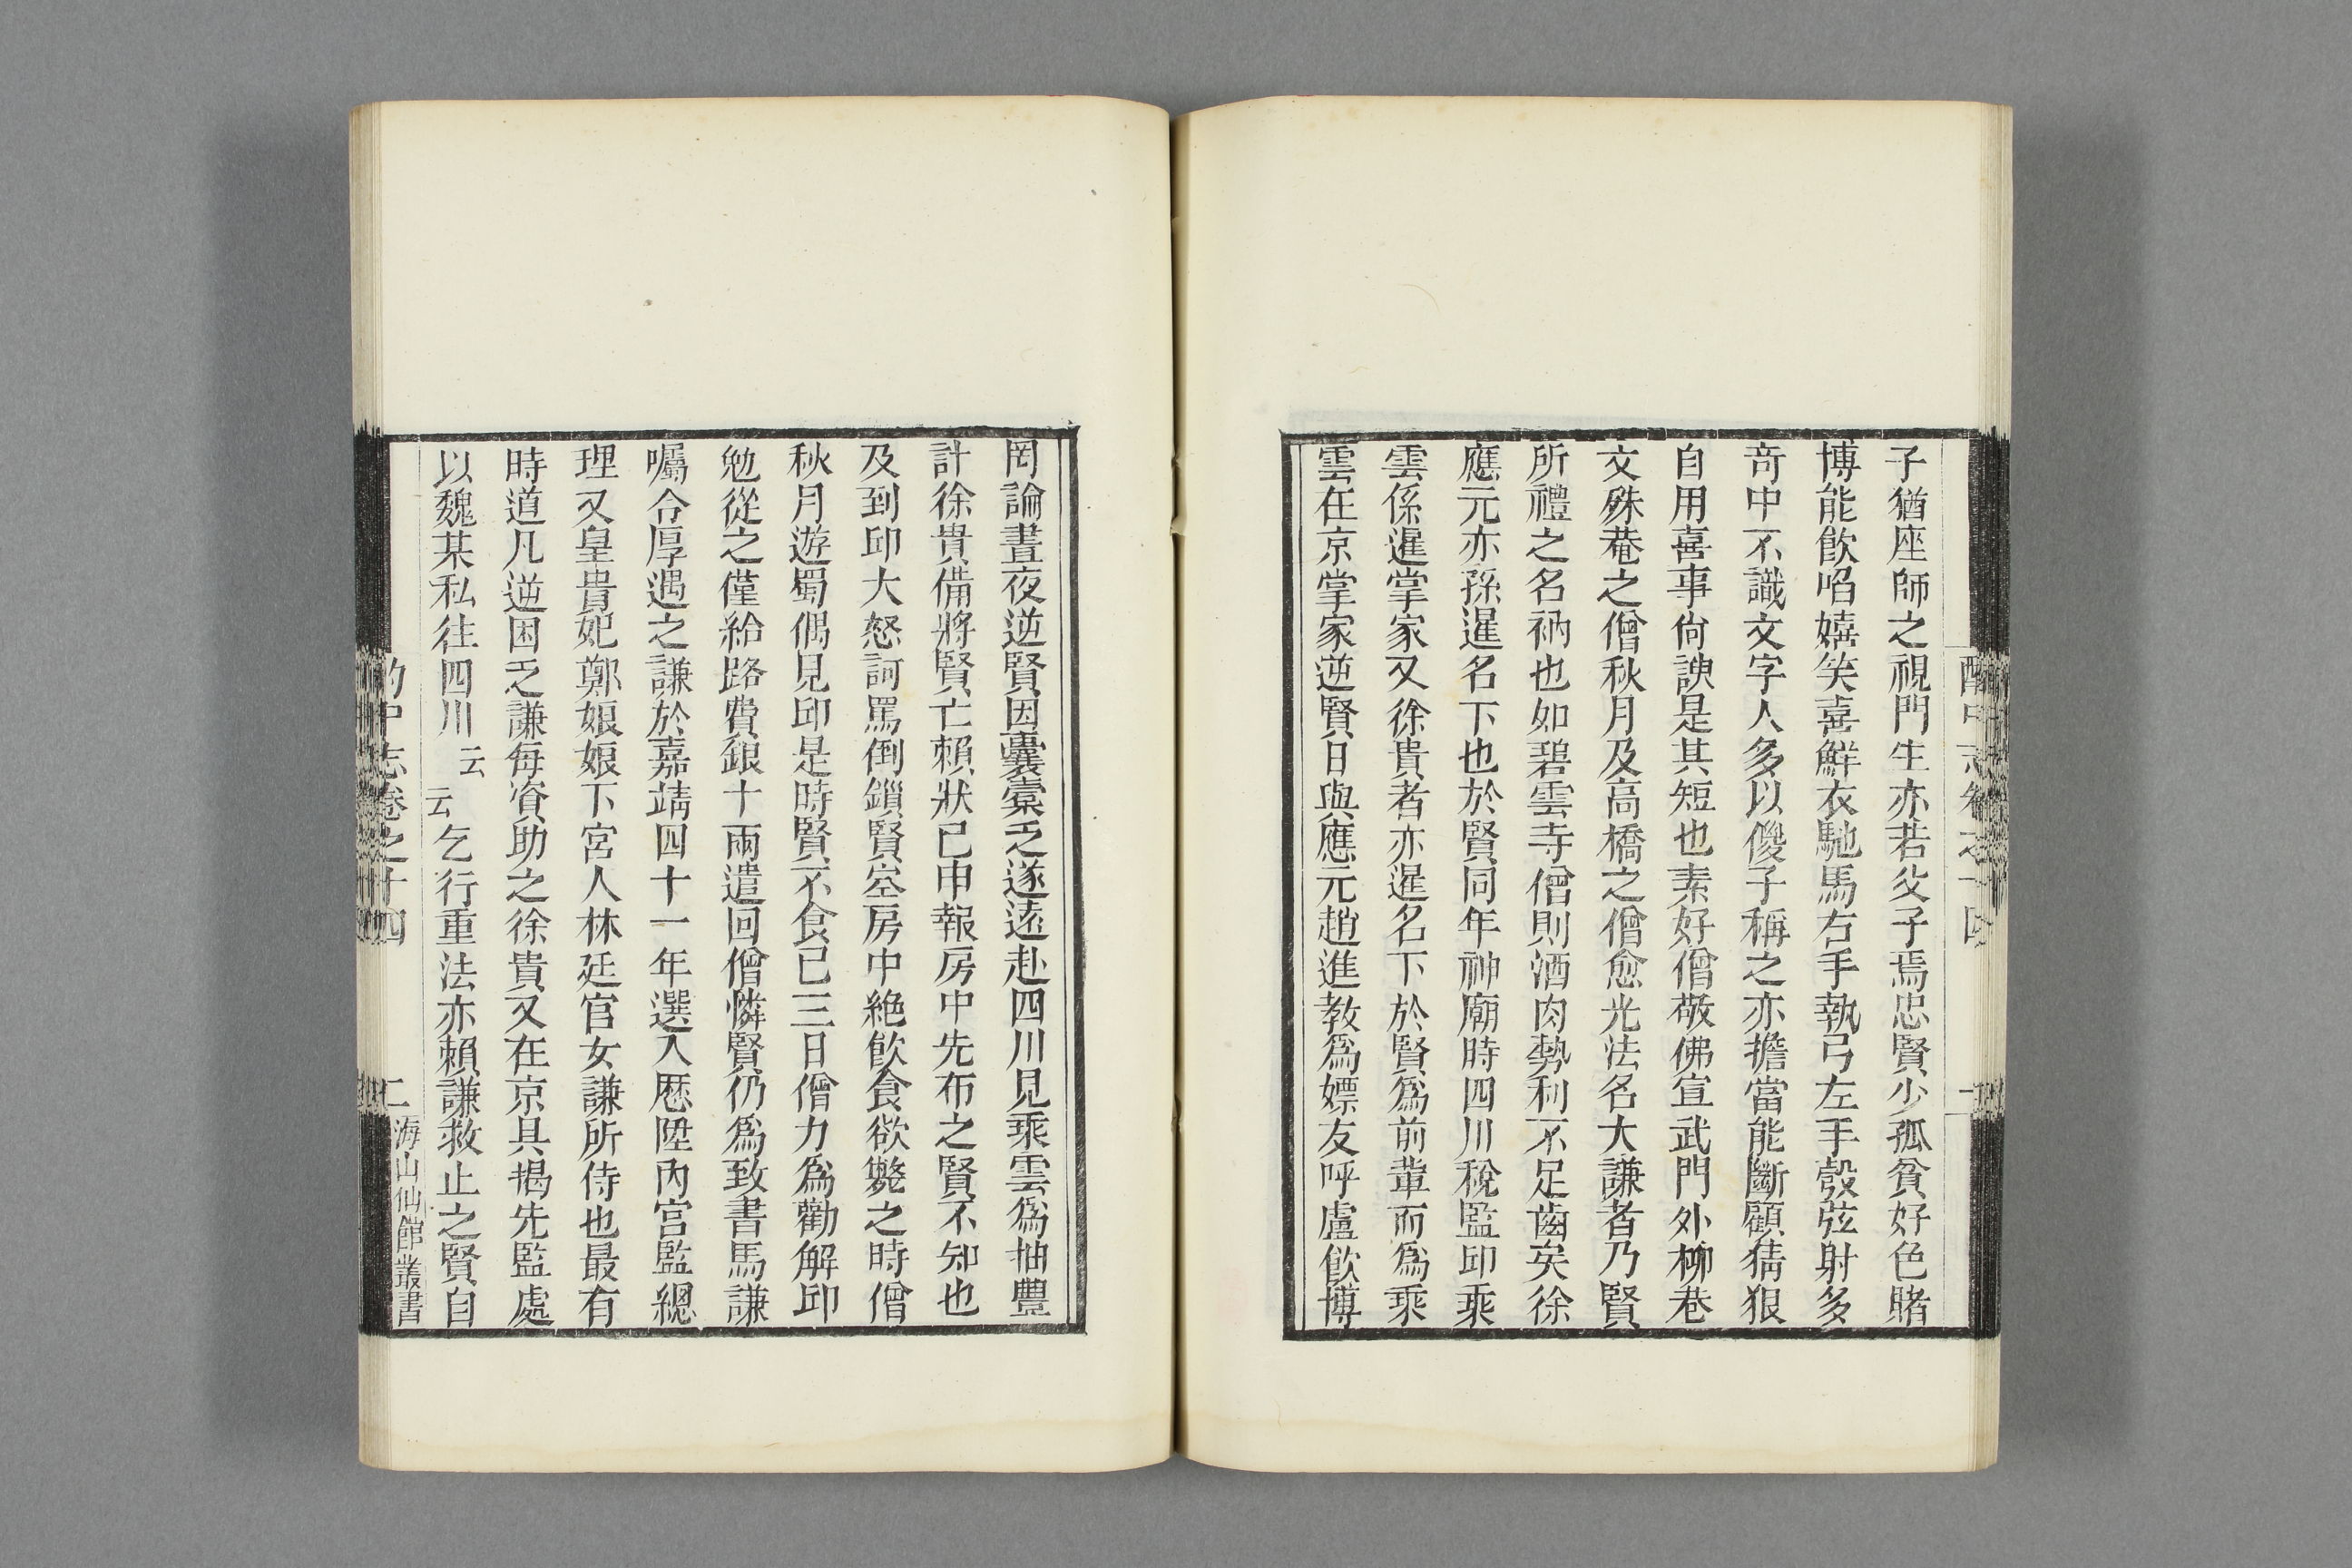 酌中志卷之十四
子猶座師之視門生亦若父子焉忠賢少孤貧好色賭
博能飮啗嬉笑喜鮮衣馳馬右手執弓左手彀弦射多
奇中不識文字人多以傻子稱之亦擔當能斷顧猜狠
自用喜事尙諛是其短也素好僧敬佛宣武門外柳巷
文殊菴之僧秋月及高橋之僧愈光法名大謙者乃賢
所禮之名衲也如碧雲寺僧則酒肉勢利不足齒矣徐
應元亦孫暹名下也於賢同年神廟時四川稅監邱乘
雲係暹掌家又徐貴者亦暹名下於賢爲前輩而爲乘
雲在京掌家逆賢日與應元趙進教爲嫖友呼盧飮博
罔論晝夜逆賢因囊橐乏遂遠赴四川見乘雲爲抽豐
計徐貴備將賢亡賴狀已申報房中先布之賢不知也
及到邱大怒訶罵倒鎖賢空房中絶飮食欲斃之時僧
秋月遊蜀偶見邱是時賢不食已三日僧力爲勸解邱
勉從之僅給路費銀十兩遣回僧憐賢仍爲致書馬謙
囑令厚遇之謙於嘉靖四十一年選入歷陞內宫監總
理又皇貴妃鄭娘娘下宮人林廷官女謙所侍也最有
時道凡逆困乏謙每資助之徐貴又在京具揭先監處
以魏某私往四川云云乞行重法亦賴謙救止之賢自
酌中志卷之十四
二
海山仙館叢書